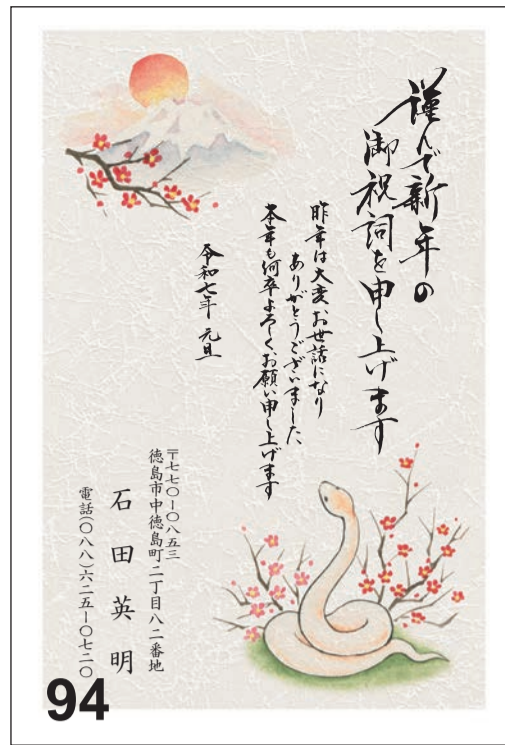 謹んで新年の
御祝詞を申し上げます
昨年は大変お世話になり
ありがとうございました
本年も何卒よろしくお願い申し上げます
令和七年 元旦
〒七七〇-〇八五三
徳島市中徳島町二丁目八二番地
石田英明
電話(〇八八)六二五-〇七二〇
94